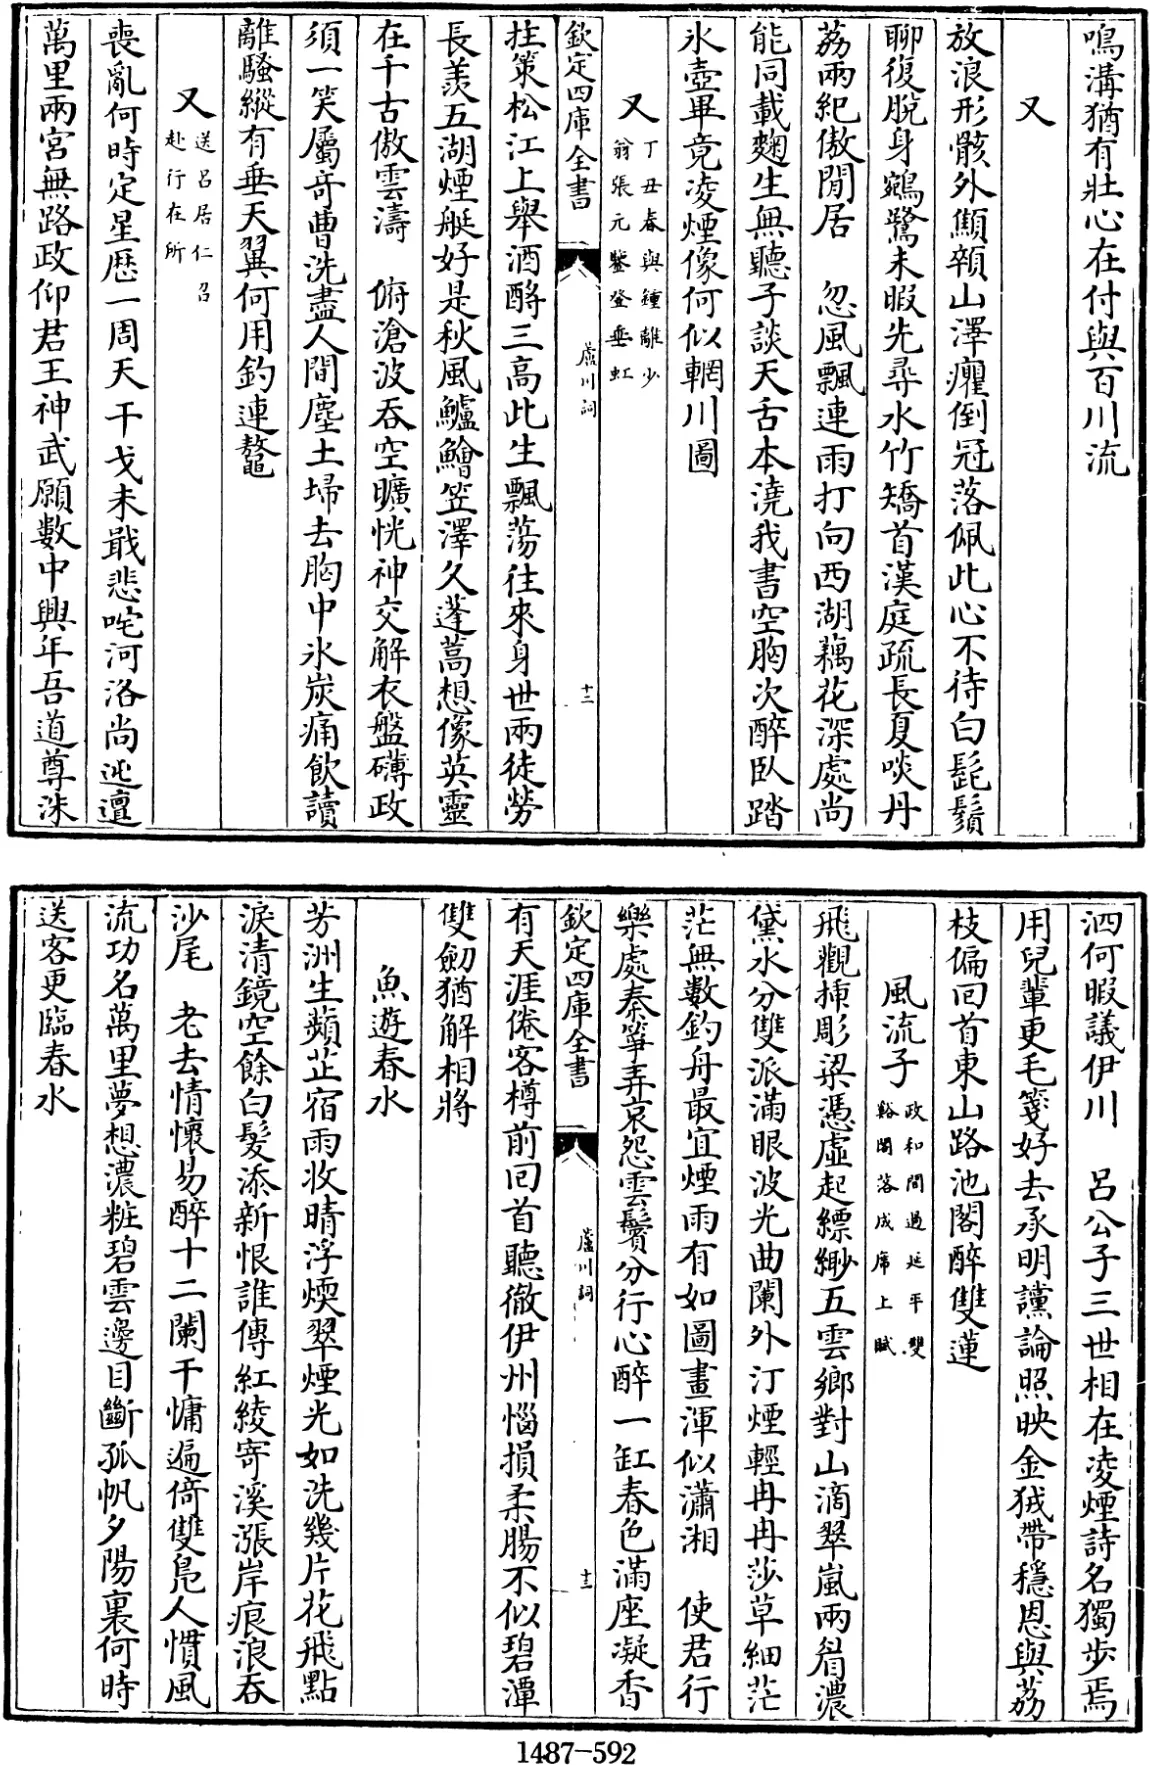 鳴溝猶有壯心在付與百川流
又
放浪形骸外顦顇山澤癯倒冠落佩此心不待白髭鬚
聊復脫身鵷鷺未暇先尋水竹矯首漢庭疏長夏啖丹
荔兩紀傲閒居　忽風飄連雨打向西湖藕花深處尚
能同載麴生無聽子談天舌本澆我書空胸次醉臥踏
氷壺畢竟凌煙像何似輞川圖
又丁丑春與鍾離少翁張元鑒登垂虹
欽定四庫全書
蘆川詞
十二
拄策松江上舉酒酹三高此生飄蕩往來身世兩徒勞
長羨五湖煙艇好是秋風鱸鱠笠澤久蓬蒿想像英靈
在千古傲雲濤　俯滄波吞空曠恍神交解衣盤礴政
須一笑屬竒曹洗盡人間塵土埽去胸中氷炭痛飲讀
離騷縱有垂天翼何用釣連鼇
又送呂居仁召赴行在所
喪亂何時定星歴一周天干戈未戢悲咤河洛尚迍邅
萬里兩宮無路政仰君王神武願數中興年吾道尊洙
泗何暇議伊川　呂公子三世相在凌煙詩名獨步焉
用兒輩更毛箋好去承明讜論照映金狨帶穩恩與荔
枝偏回首東山路池閣醉雙蓮
風流子政和間過延平雙谿閣落成席上賦
飛觀揷彫梁憑虛起縹緲五雲鄉對山滴翠嵐兩眉濃
黛水分雙派滿眼波光曲闌外汀煙輕冉冉莎草細茫
茫無數釣舟最宜煙雨有如圖畫渾似瀟湘　使君行
樂處秦箏弄哀怨雲鬢分行心醉一缸春色滿座凝香
欽定四庫全書
蘆川詞
十三
有天涯倦客樽前回首聽徹伊州惱損柔腸不似碧潭
雙劒猶解相將
魚遊春水
芳洲生蘋芷宿雨收晴浮煖翠煙光如洗幾片花飛點
淚清鏡空餘白髮添新恨誰傳紅綾寄溪漲岸痕浪吞
沙尾　老去情懷易醉十二闌干慵遍倚雙鳧人慣風
流功名萬里夢想濃粧碧雲邊目斷孤帆夕陽裏何時
送客更臨春水
1487-592